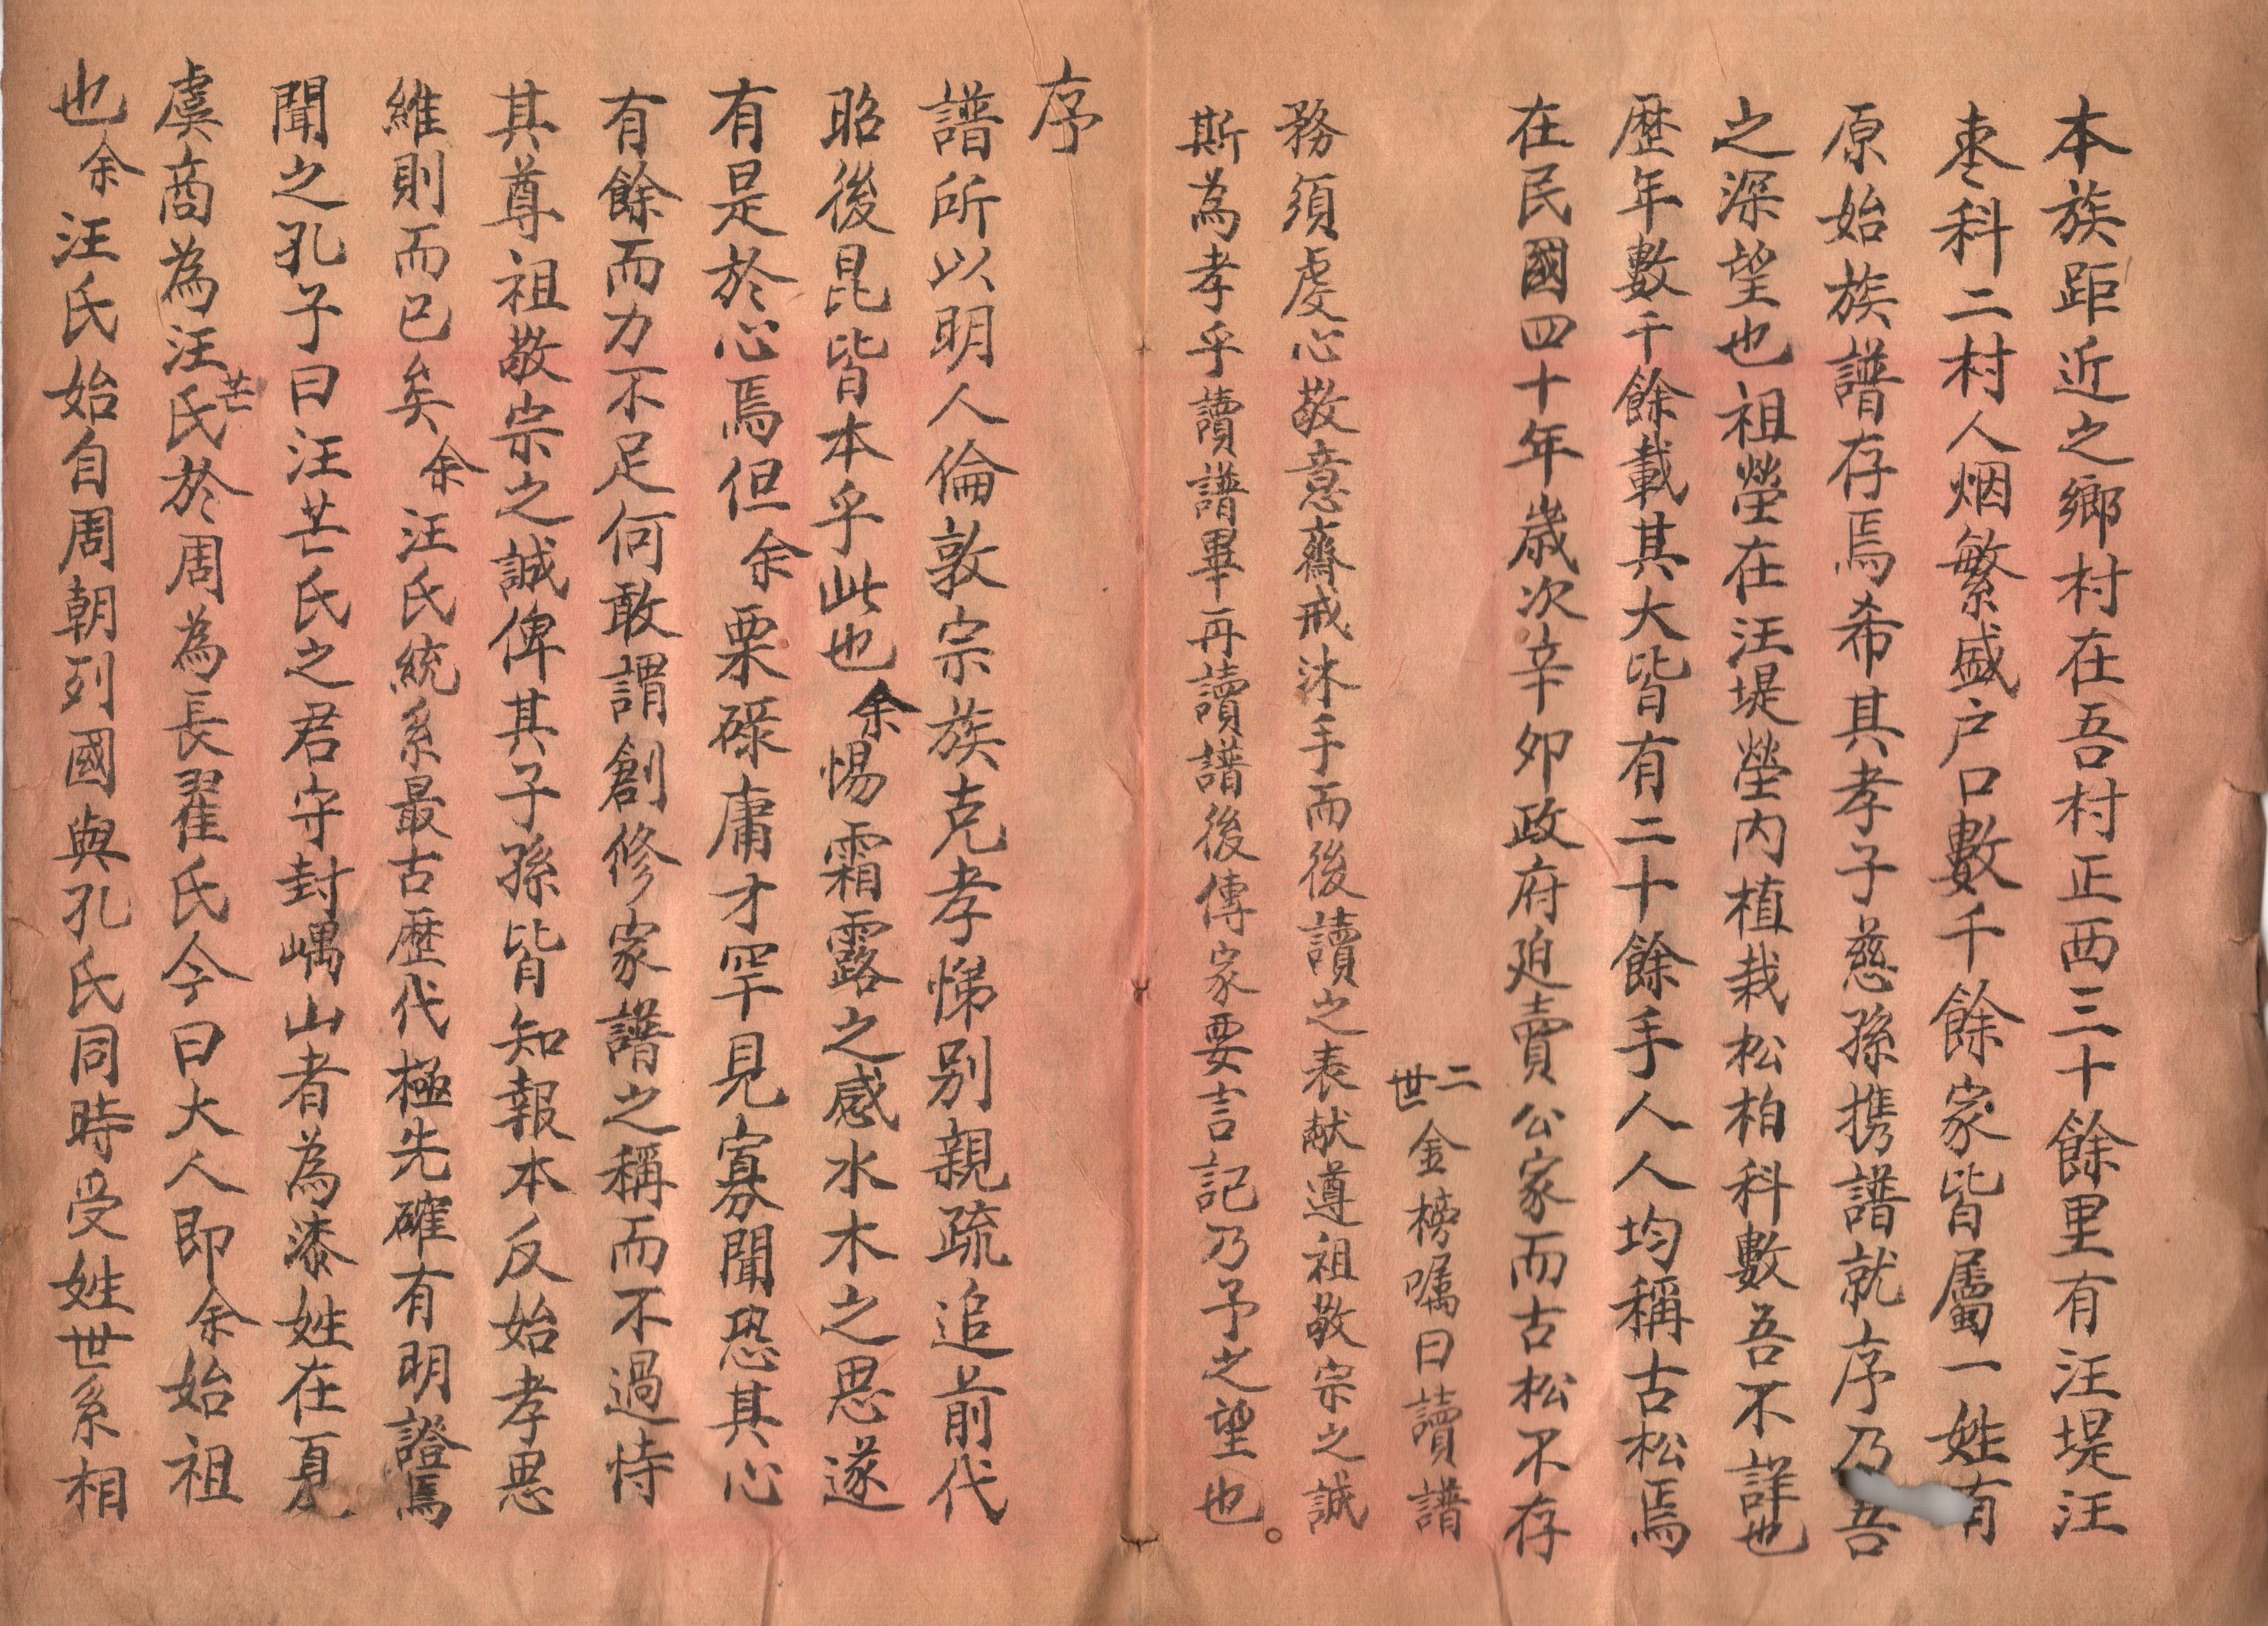 本族距近之鄉村在吾村正西三十餘里有汪堤汪
枣科二村人烟繁盛户口數千餘家皆屬一姓有
原始族譜存焉希其孝子慈孫携譜就序乃吾
之深望也祖塋在汪堤塋内植栽松柏科數吾不詳也
歷年數千餘載其大皆有二十餘手人人均稱古松焉
在民國四十年歲次辛卯政府迫賣公家而古松不存
二世金榜嘱曰讀譜
務須虔心敬意齋戒沐手而後讀之表献遵祖敬宗之誠
斯為孝乎讀譜畢再讀譜後傳家要言記乃予之望也。
序
譜所以明人倫敦宗族克孝悌别親疏追前代
昭後昆皆本乎此也余惕霜露之感水木之思遂
有是於心焉但余栗碌庸才罕見寡聞恐其心
有餘而力不足何敢謂創修家譜之稱而不過恃
其尊祖敬宗之誠俾其子孫皆知報本反始孝思
維則而已矣余汪氏統系最古歷代極先確有明證焉
聞之孔子曰汪芒氏之君守封嵎山者為漆姓在夏
虞商為汪芒氏於周為長翟氏今曰大人即余始祖
也余汪氏始自周朝列國與孔氏同時受姓世系相